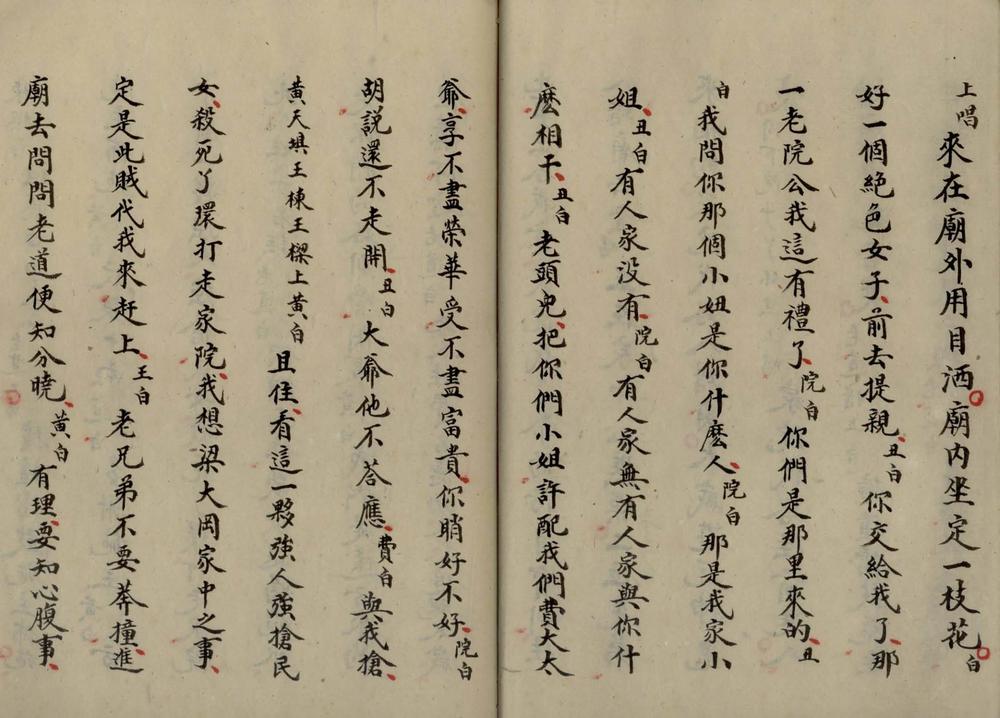 上唱來在廟外用目洒廟内坐定一枝花白
好一個絕色女子前去提親丑白你交給我了那
一老院公我這有禮了院白你們是那里來的丑
白我問你那個小妞是你什麽人院白那是我家小
姐丑白有人家没有院白有人家無有人家與你什
麽相干丑白老頭兒把你們小姐許配我們費大太
爺享不盡榮華受不盡富貴你睄好不好院白
胡說還不走開丑白大爺他不荅應費白與我搶
黄天埧王棟王樑上黄白且住看這一夥強人強搶民
女殺死丫環打走家院我想梁大岡家中之事
定是此賊代我來赶上王白老兄弟不要莽撞進
廟去問問老道便知分曉黄白有理要知心腹事